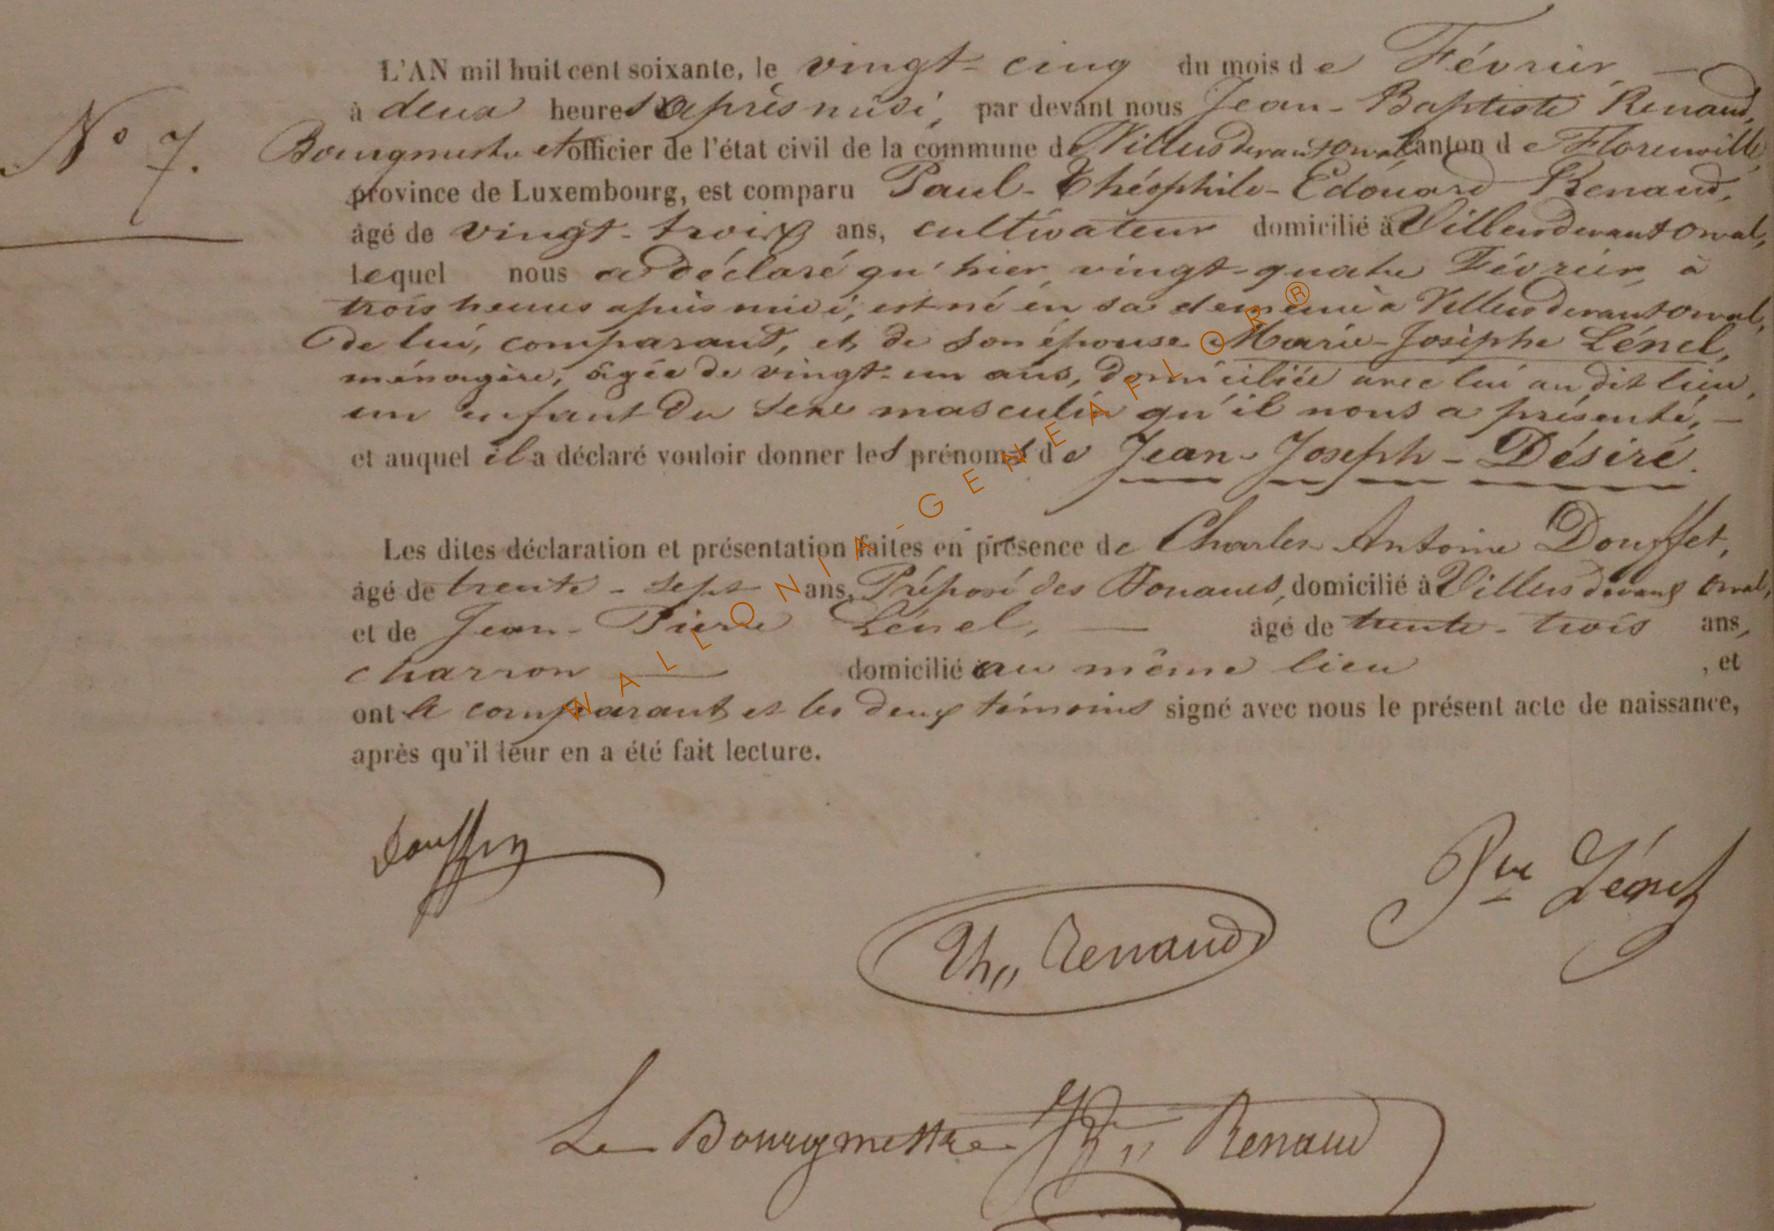 N° 7.
L'AN mil huit cent soixante, le vingt-cinq du mois de Février,
à deux heures après midi, par devant nous Jean-Baptiste Renaud,
Bourgmestre et officier de l'état civil de la commune de Villers devant Orval canton de Florenville,
province de Luxembourg, est comparu Paul-Théophile-Edouard Renaud,
âgé de vingt-trois ans, cultivateur domicilié à Villers devant Orval,
lequel nous a déclaré qu'hier, vingt-quatre Février, à
trois heures après midi, est né en sa demeure à Villers devant Orval,
de lui, comparant, et de son épouse Marie-Josèphe Lénel,
ménagère, âgée de vingt-un ans, domiciliée avec lui au dit lieu,
un enfant du sexe masculin qu'il nous a présenté,
et auquel il a déclaré vouloir donner les prénoms de Jean-Joseph-Désiré.
Les dites déclaration et présentation faites en présence de Charles Antoine Douffet,
âgé de trente-sept ans, Préposé des Douanes, domicilié à Villers devant Orval,
et de Jean-Pierre Lénel, âgé de trente-trois ans,
charron domicilié au même lieu, et
ont le comparant et les deux témoins signé avec nous le présent acte de naissance,
après qu'il leur en a été fait lecture.
Douffet
Pre Lénel
Th,, Renaud
Le Bourgmestre JB,, Renaud
WALLONIA-GENEAFLOR®